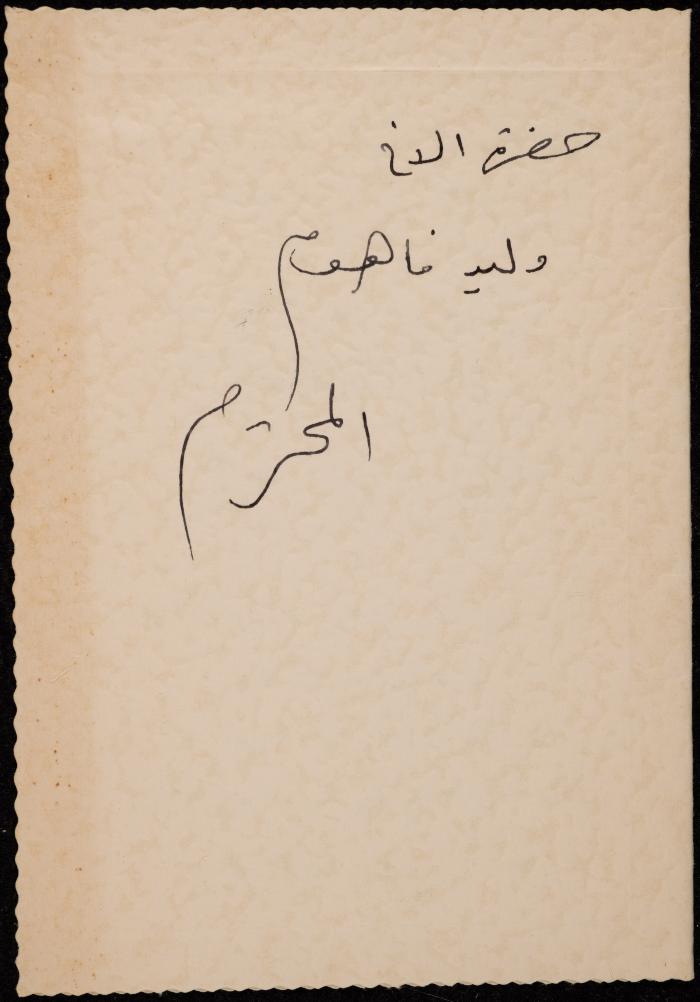 حضرة الاخ
وليد فاهوم
المحترم